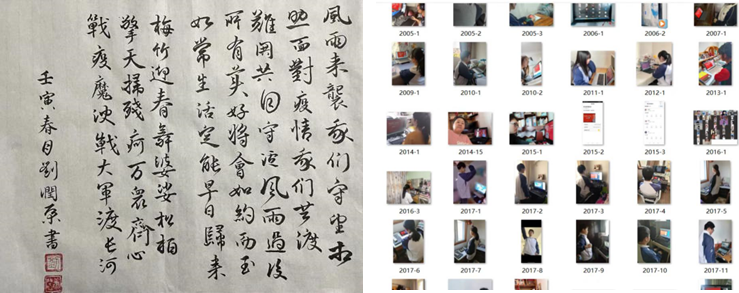 風雨来襲我們守望相
助面對疫情我們共渡
難関共同守风雨過後
所有美好將會如約而至
如常生活定能早日歸来
梅竹迎春舞婆娑松柏
擎天掃殘疴万眾齊心
戰疫魔决戰大軍渡长河
壬寅春月劉潤書
2005-1 2005-2 2005-3 2006-1 2006-2 2007-1
2009-1 2010-1 2010-2 2011-1 2012-1 2013-1
2014-1 2014-15 2015-1 2015-2 2015-3 2016-1
2016-3 2017-1 2017-2 2017-3 2017-4 2017-5
2017-6 2017-7 2017-8 2017-9 2017-10 2017-11